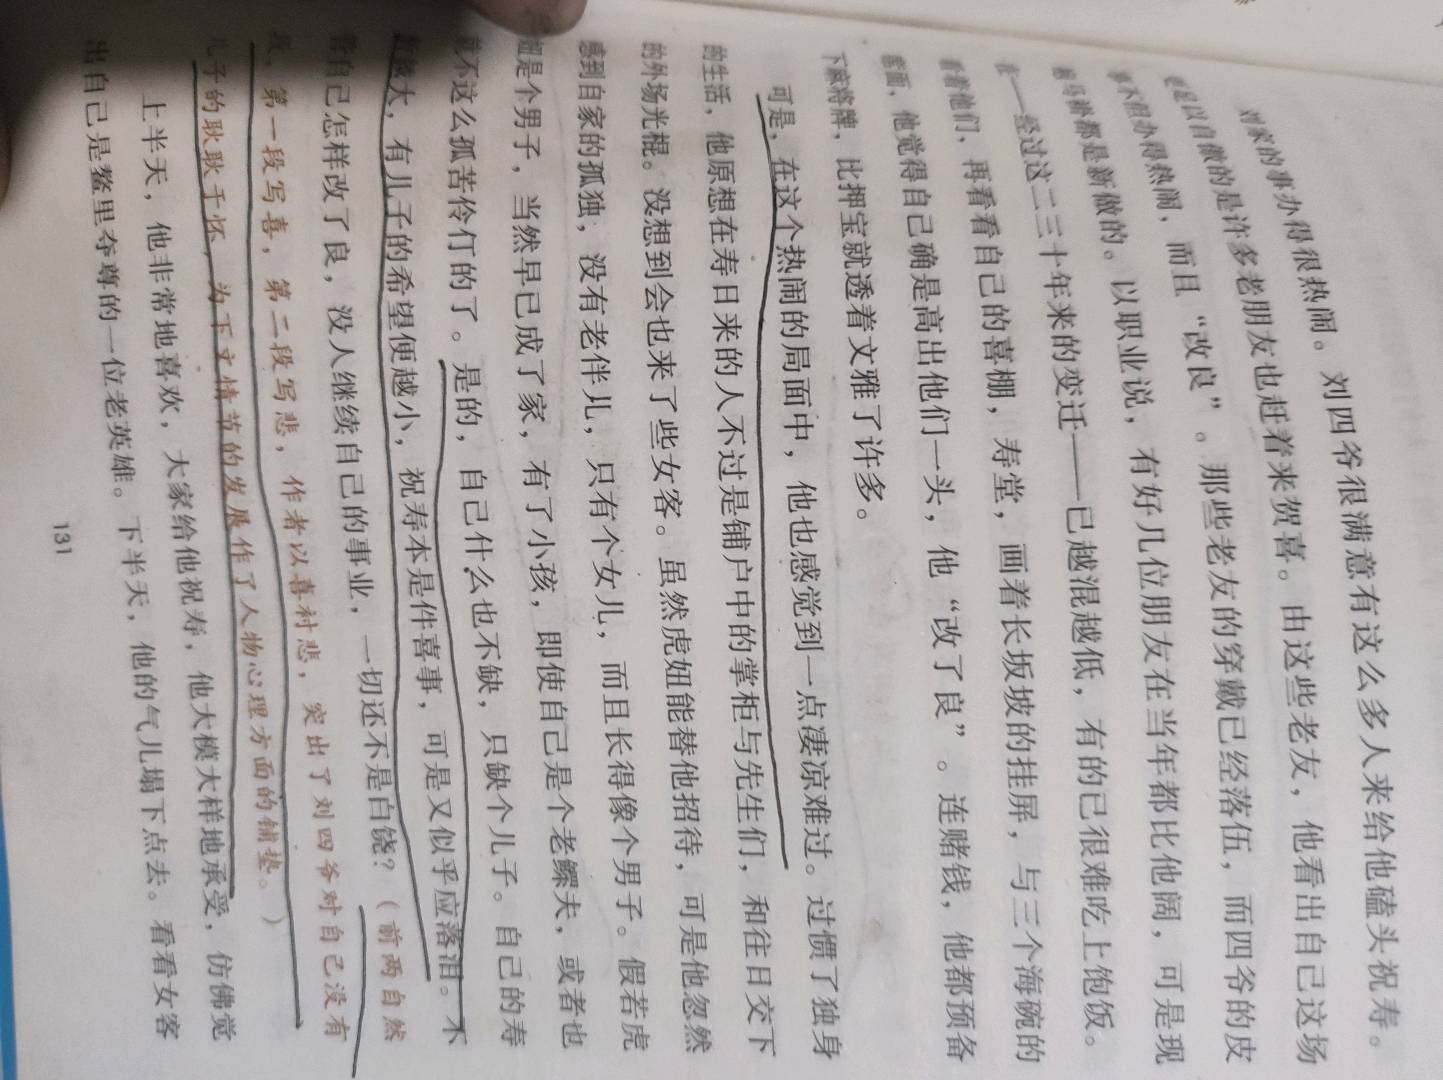 刘家的事办得很热闹。刘四爷很满意有这么多人来给他磕头祝寿。
更足以自傲的是许多老朋友也赶着来贺喜。由这些老友，他看出自己这场
事不但办得热闹，而且“改良”。那些老友的穿戴已经落伍，而四爷的皮
袍马褂都是新做的。以职业说，有好几位朋友在当年都比他阔，可是现
在——经过这二三十年来的变迁——已越混越低，有的已很难吃上饱饭。
看着他们，再看看自己的喜棚，寿堂，画着长坂坡的挂屏，与三个海碗的
席面，他觉得自己确是高出他们一头，他“改了良”。连赌钱，他都预备
下麻将牌，比押宝就透着文雅了许多。
可是，在这个热闹的局面中，他也感觉到一点凄凉难过。过惯了独身
的生活，他原想在寿日来的人不过是铺户中的掌柜与先生们，和往日交下
的外场光棍。没想到会也来了些女客。虽然虎妞能替他招待，可是他忽然
感到自家的孤独，没有老伴儿，只有个女儿，而且长得像个男子。假若虎
妞是个男子，当然早已成了家，有了小孩，即使自己是个老鳏夫，或者也
就不这么孤苦伶仃的了。是的，自己什么也不缺，只缺个儿子。自己的寿
数越大，有儿子的希望便越小，祝寿本是件喜事，可是又似乎应落泪。不
管自己怎样改了良，没人继续自己的事业，一切还不是白饶？（前两自然
段，第一段写喜，第二段写悲，作者以喜衬悲，突出了刘四爷对自己没有
儿子的耿耿于怀，为下文情节的发展作了人物心理方面的铺垫。）
上半天，他非常地喜欢，大家给他祝寿，他大模大样地承受，仿佛觉
出自己是鳌里夺尊的一位老英雄。下半天，他的气儿塌下点去。看看女客
131